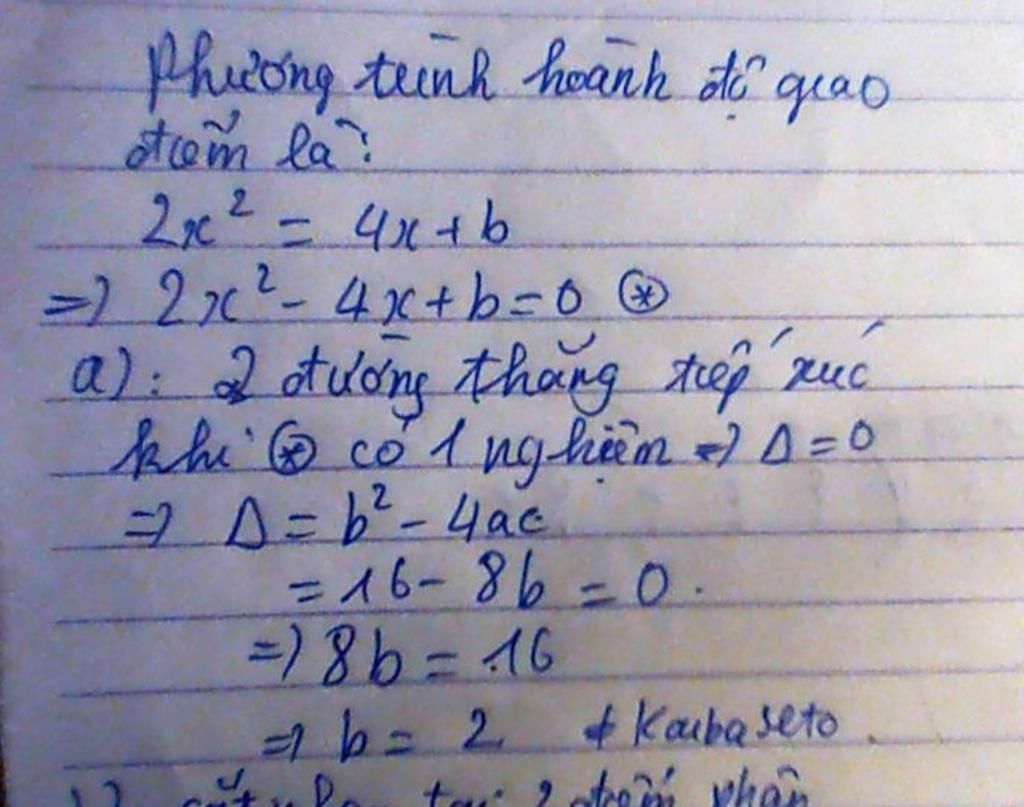 Phương trình hoành độ giao
điểm là:
2x² = 4x + b
=> 2x² - 4x + b = 0 ⊛
a): 2 đường thẳng tiếp xúc
khi ⊛ có 1 nghiệm => Δ = 0
=> Δ = b² - 4ac
= 16 - 8b = 0.
=> 8b = 16
=> b = 2. + Kaibaseto.
cắt nhau tại 2 điểm phân